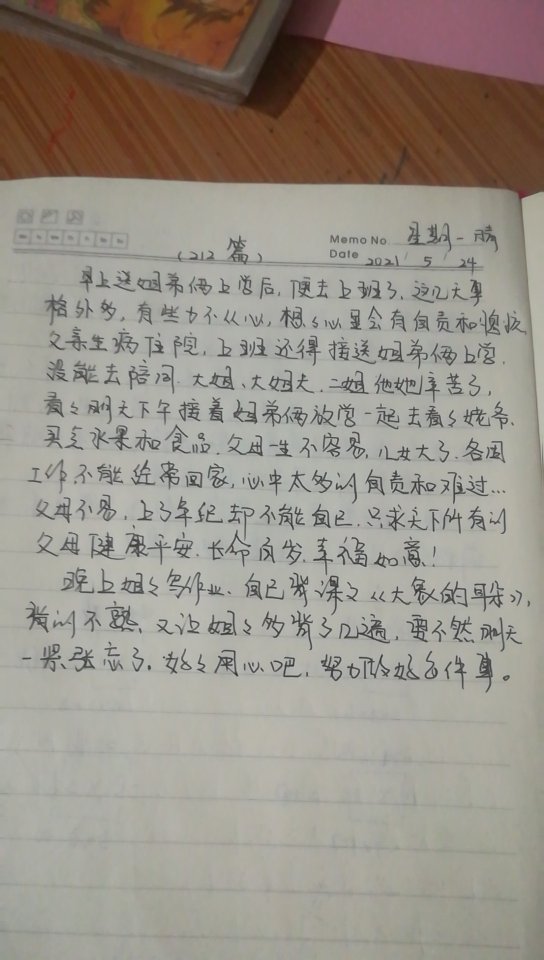 Memo No. 星期一 晴
(212 篇)
Date 2021 / 5 / 24
早上送姐弟俩上学后,便去上班了,这几天事
格外多,有些力不从心,想想心里会有自责和愧疚
父亲生病住院,上班还得接送姐弟俩上学.
没能去陪同.大姐、大姐夫.二姐他她辛苦了,
看看明天下午接着姐弟俩放学一起去看看姥爷.
买点水果和食品.父母一生不容易,儿女大了.各困
工作,不能经常回家,心中太多的自责和难过...
父母不易,上了年纪却不能自已.只求天下所有的
父母健康平安.长命百岁.幸福如意!
晚上姐姐写作业.自己背课文《大象的耳朵》,
背的不熟.又让姐姐多背了几遍,要不然明天
一紧张忘了。好好用心吧,努力做好每件事。